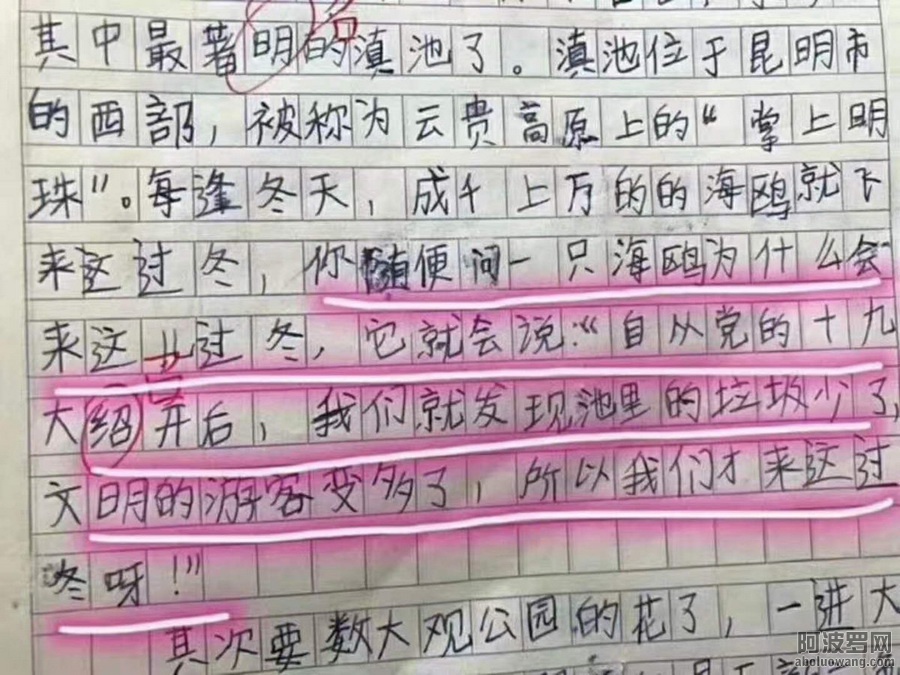 其中最著明的滇池了。滇池位于昆明市
名
的西部，被称为云贵高原上的“掌上明
珠”。每逢冬天，成千上万的的海鸥就飞
来这过冬，你随便问一只海鸥为什么会
来这儿过冬，它就会说：“自从党的十九
召
大绍开后，我们就发现池里的垃圾少了，
文明的游客变多了，所以我们才来这过
冬呀！”
其次要数大观公园的花了，一进大
阿波罗网
aboluowang.com